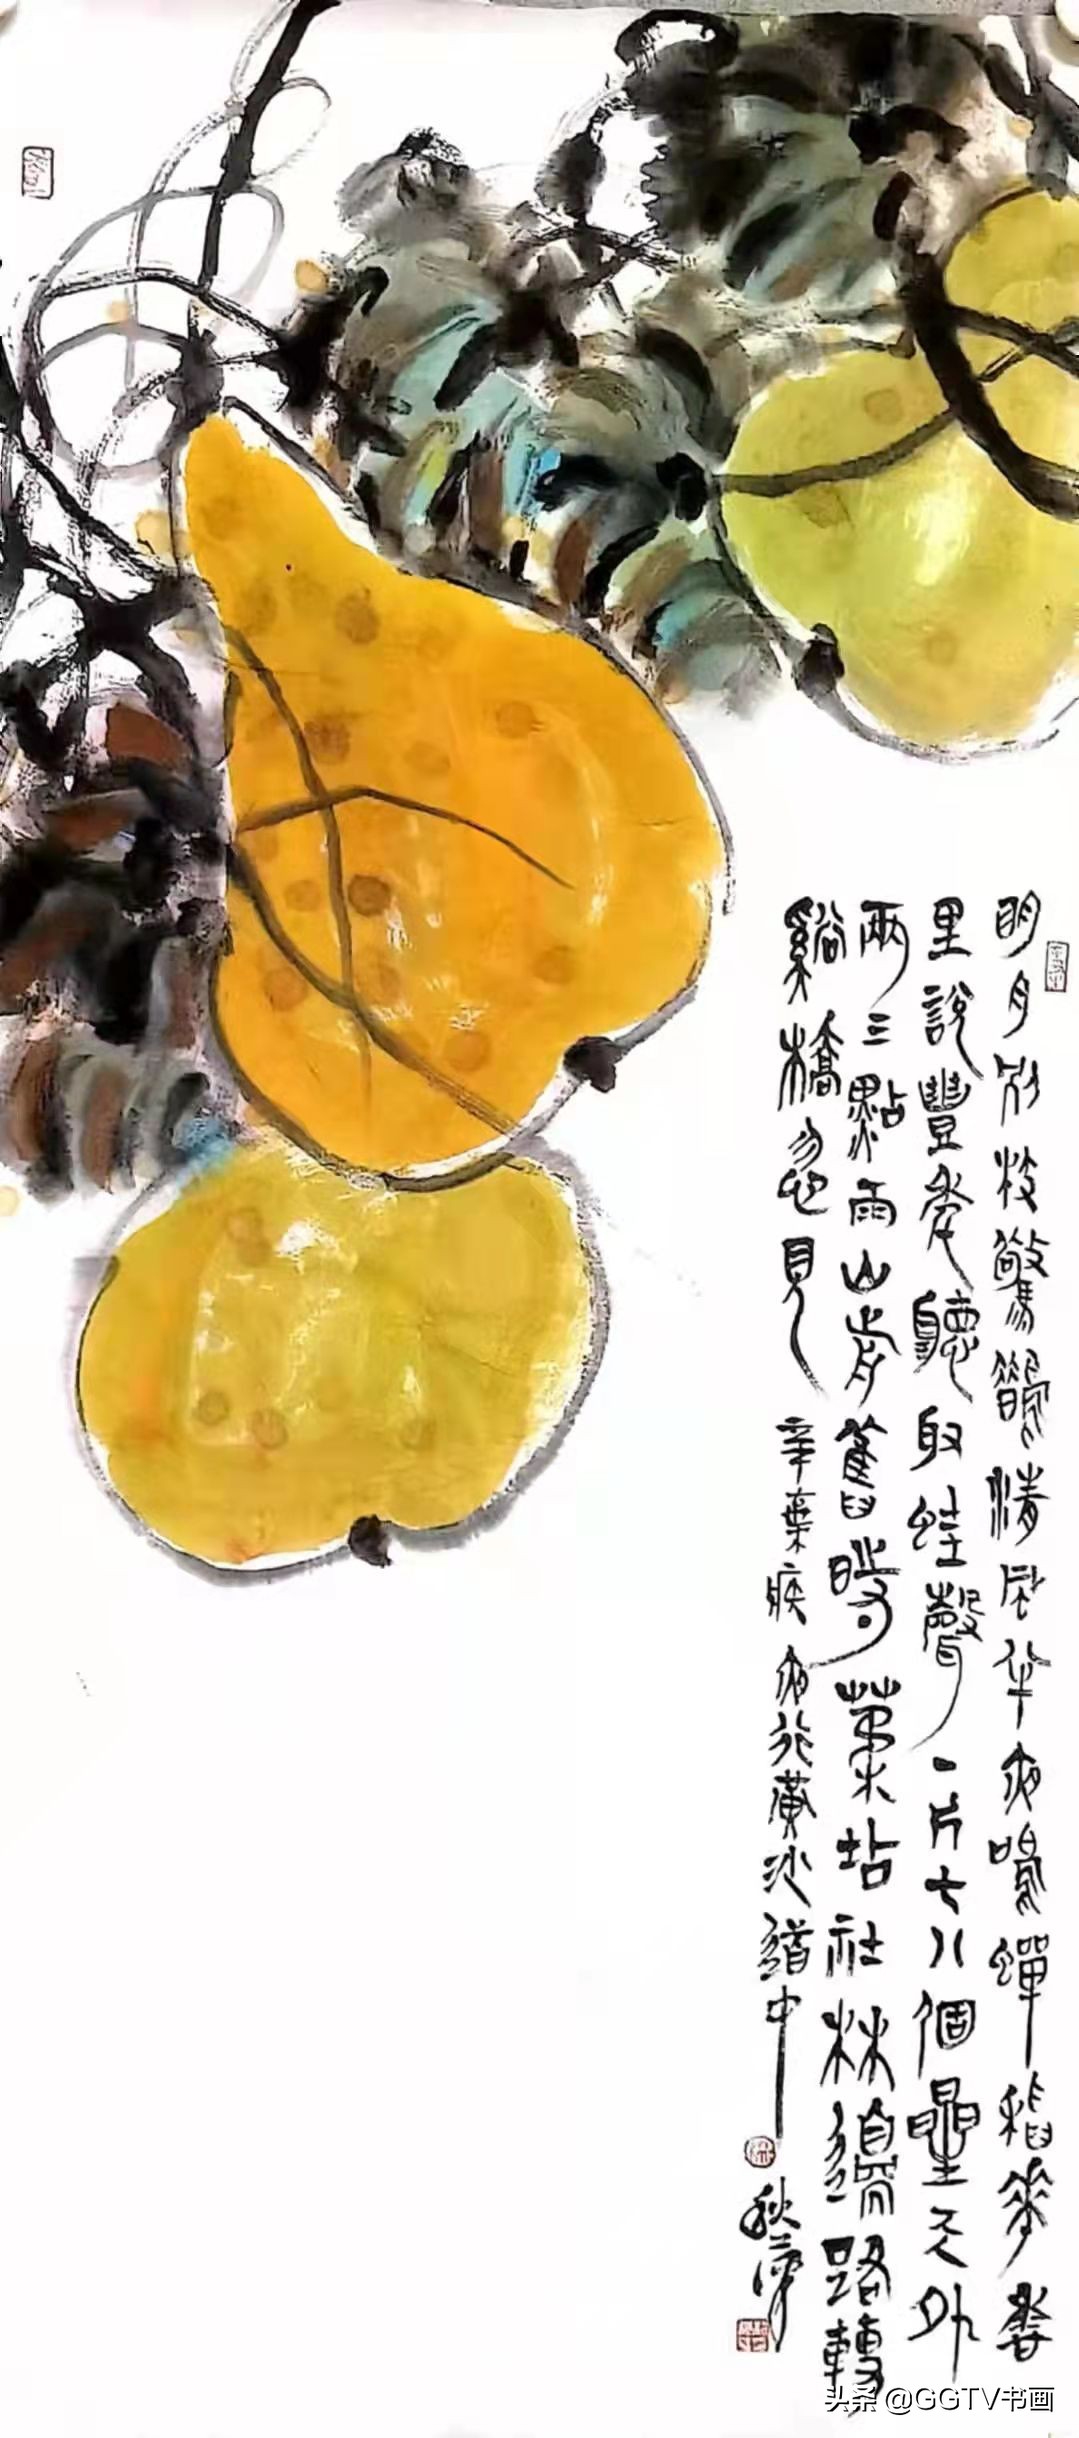 明月別枝驚鵲清風半夜鳴蟬稻花香
里說豐年聽取蛙聲一片七八個星天外
兩三點雨山前舊時茅坫社林邊路轉
谿橋忽見 辛棄疾夜行黃沙道中
秋
头条 @GGTV书画